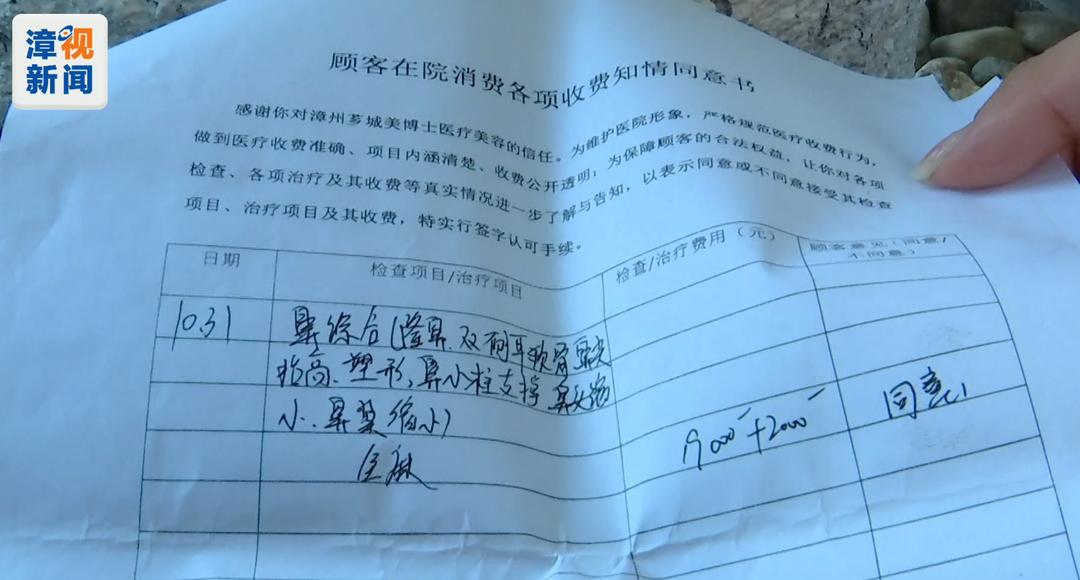 漳视
新闻
顾客在院消费各项收费知情同意书
感谢你对漳州芗城美博士医疗美容的信任。为维护医院形象，严格规范医疗收费行为，
做到医疗收费准确、项目内涵清楚、收费公开透明；为保障顾客的合法权益，让你对各项
检查、各项治疗及其收费等真实情况进一步了解与告知，以表示同意或不同意接受其检查
项目、治疗项目及其收费，特实行签字认可手续。
日期 检查项目/治疗项目 检查/治疗费用（元） 顾客意见（同意/
不同意）
10.31 鼻综合（隆鼻.双侧耳软骨鼻尖
抬高、塑形、鼻小柱支撑
小、鼻翼缩小）
全麻
9000+2000 同意